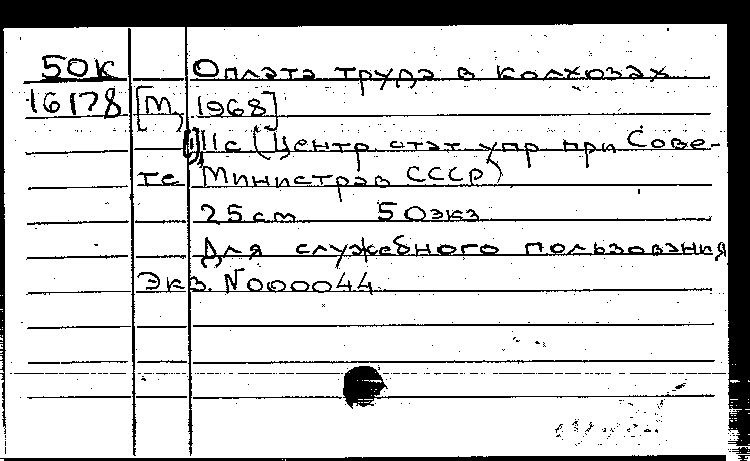 50К Оплата труда в колхозах
16178 [М, 1968]
11с (Центр стат упр при Сове-
те Министров СССР)
25 см 50 экз
Для служебного пользования
Экз. N 000044